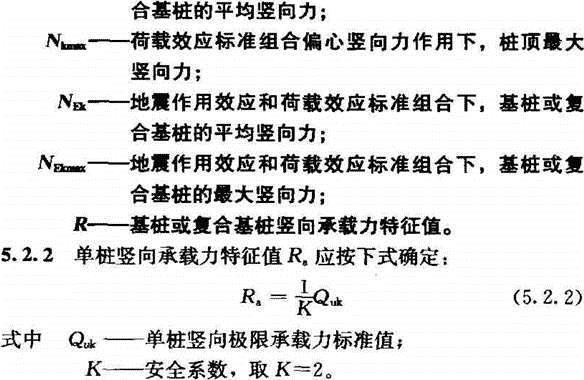 合基桩的平均竖向力；
Nkmax——荷载效应标准组合偏心竖向力作用下，桩顶最大
竖向力；
NEk——地震作用效应和荷载效应标准组合下，基桩或复
合基桩的平均竖向力；
NEkmax——地震作用效应和荷载效应标准组合下，基桩或复
合基桩的最大竖向力；
R——基桩或复合基桩竖向承载力特征值。
5.2.2 单桩竖向承载力特征值 Ra 应按下式确定：
Ra = 1/K Quk (5.2.2)
式中 Quk ——单桩竖向极限承载力标准值；
K——安全系数，取 K=2。